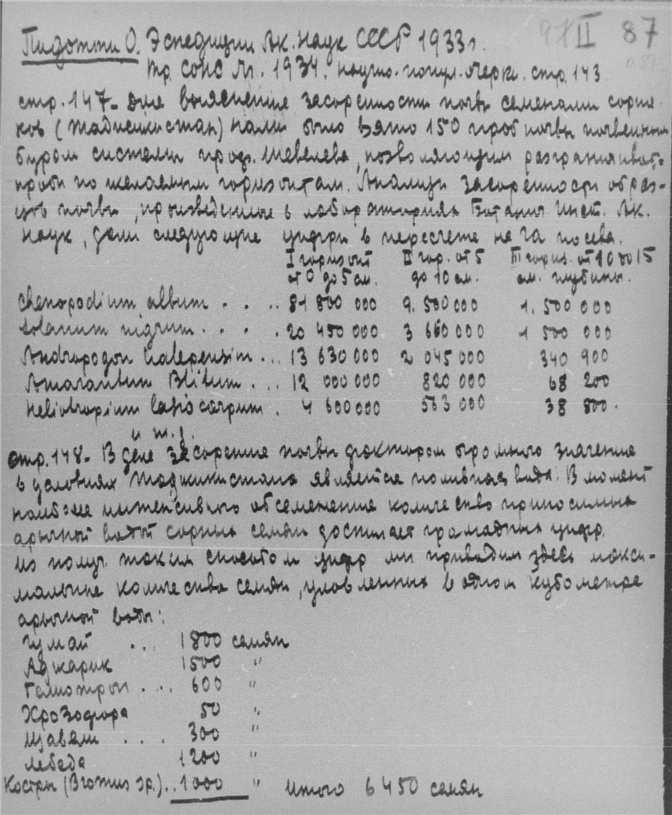 Пидотти О. Экспедиции Ак. Наук СССР 1933 г. II 87
Тр. СОПС М. 1934. научно-попул. очерк. стр. 143
стр. 147 - для выяснения засоренности почвы семенами сорня-
ков (Таджикистан) нами было взято 150 проб почвы почвенным
буром системы проф. Шевелева, позволяющим разграничивать
пробы по желаемым горизонтам. Анализы засоренности образ-
цов почвы, произведенные в лабораториях Ботанич. Инст. Ак.
Наук, дали следующие цифры в пересчете на га посева.
I горизонт II гор. от 5 III гориз. от 10 до 15
от 0 до 5 см. до 10 см. см. глубины.
Chenopodium album . . . 81 800 000 9. 500 000 1. 500 000
Solanum nigrum . . . . 20 450 000 3 660 000 1 500 000
Andropogon halepensim ... 13 630 000 2 045 000 340 900
Amarantum Blitum . ... 12 000 000 820 000 68 200
Heliotropium lasiocarpum . 4 600 000 533 000 38 500.
и т.д.
стр. 148 - В деле засорения почвы фактором огромного значения
в условиях Таджикистана является поливная вода. В момент
наиболее интенсивного обсеменения количество приносимых
арычной водой сорных семян достигает громадных цифр.
Из получ. таким способом цифр мы приводим здесь макси-
мальные количества семян, уловленных в одном кубометре
арычной воды:
Гумай ... 1800 семян
Аджарик 1500 "
Гелиотроп ... 600 "
Хрозофора 50 "
Щавели .... 300 "
Лебеда 1200 "
Костры (Bromus sp.) .. 1000 " итого 6450 семян